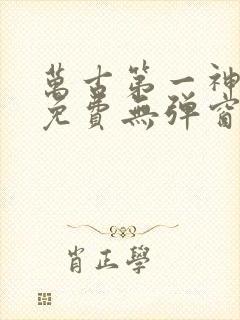 萬古第一神
免費無彈窗
肖正學